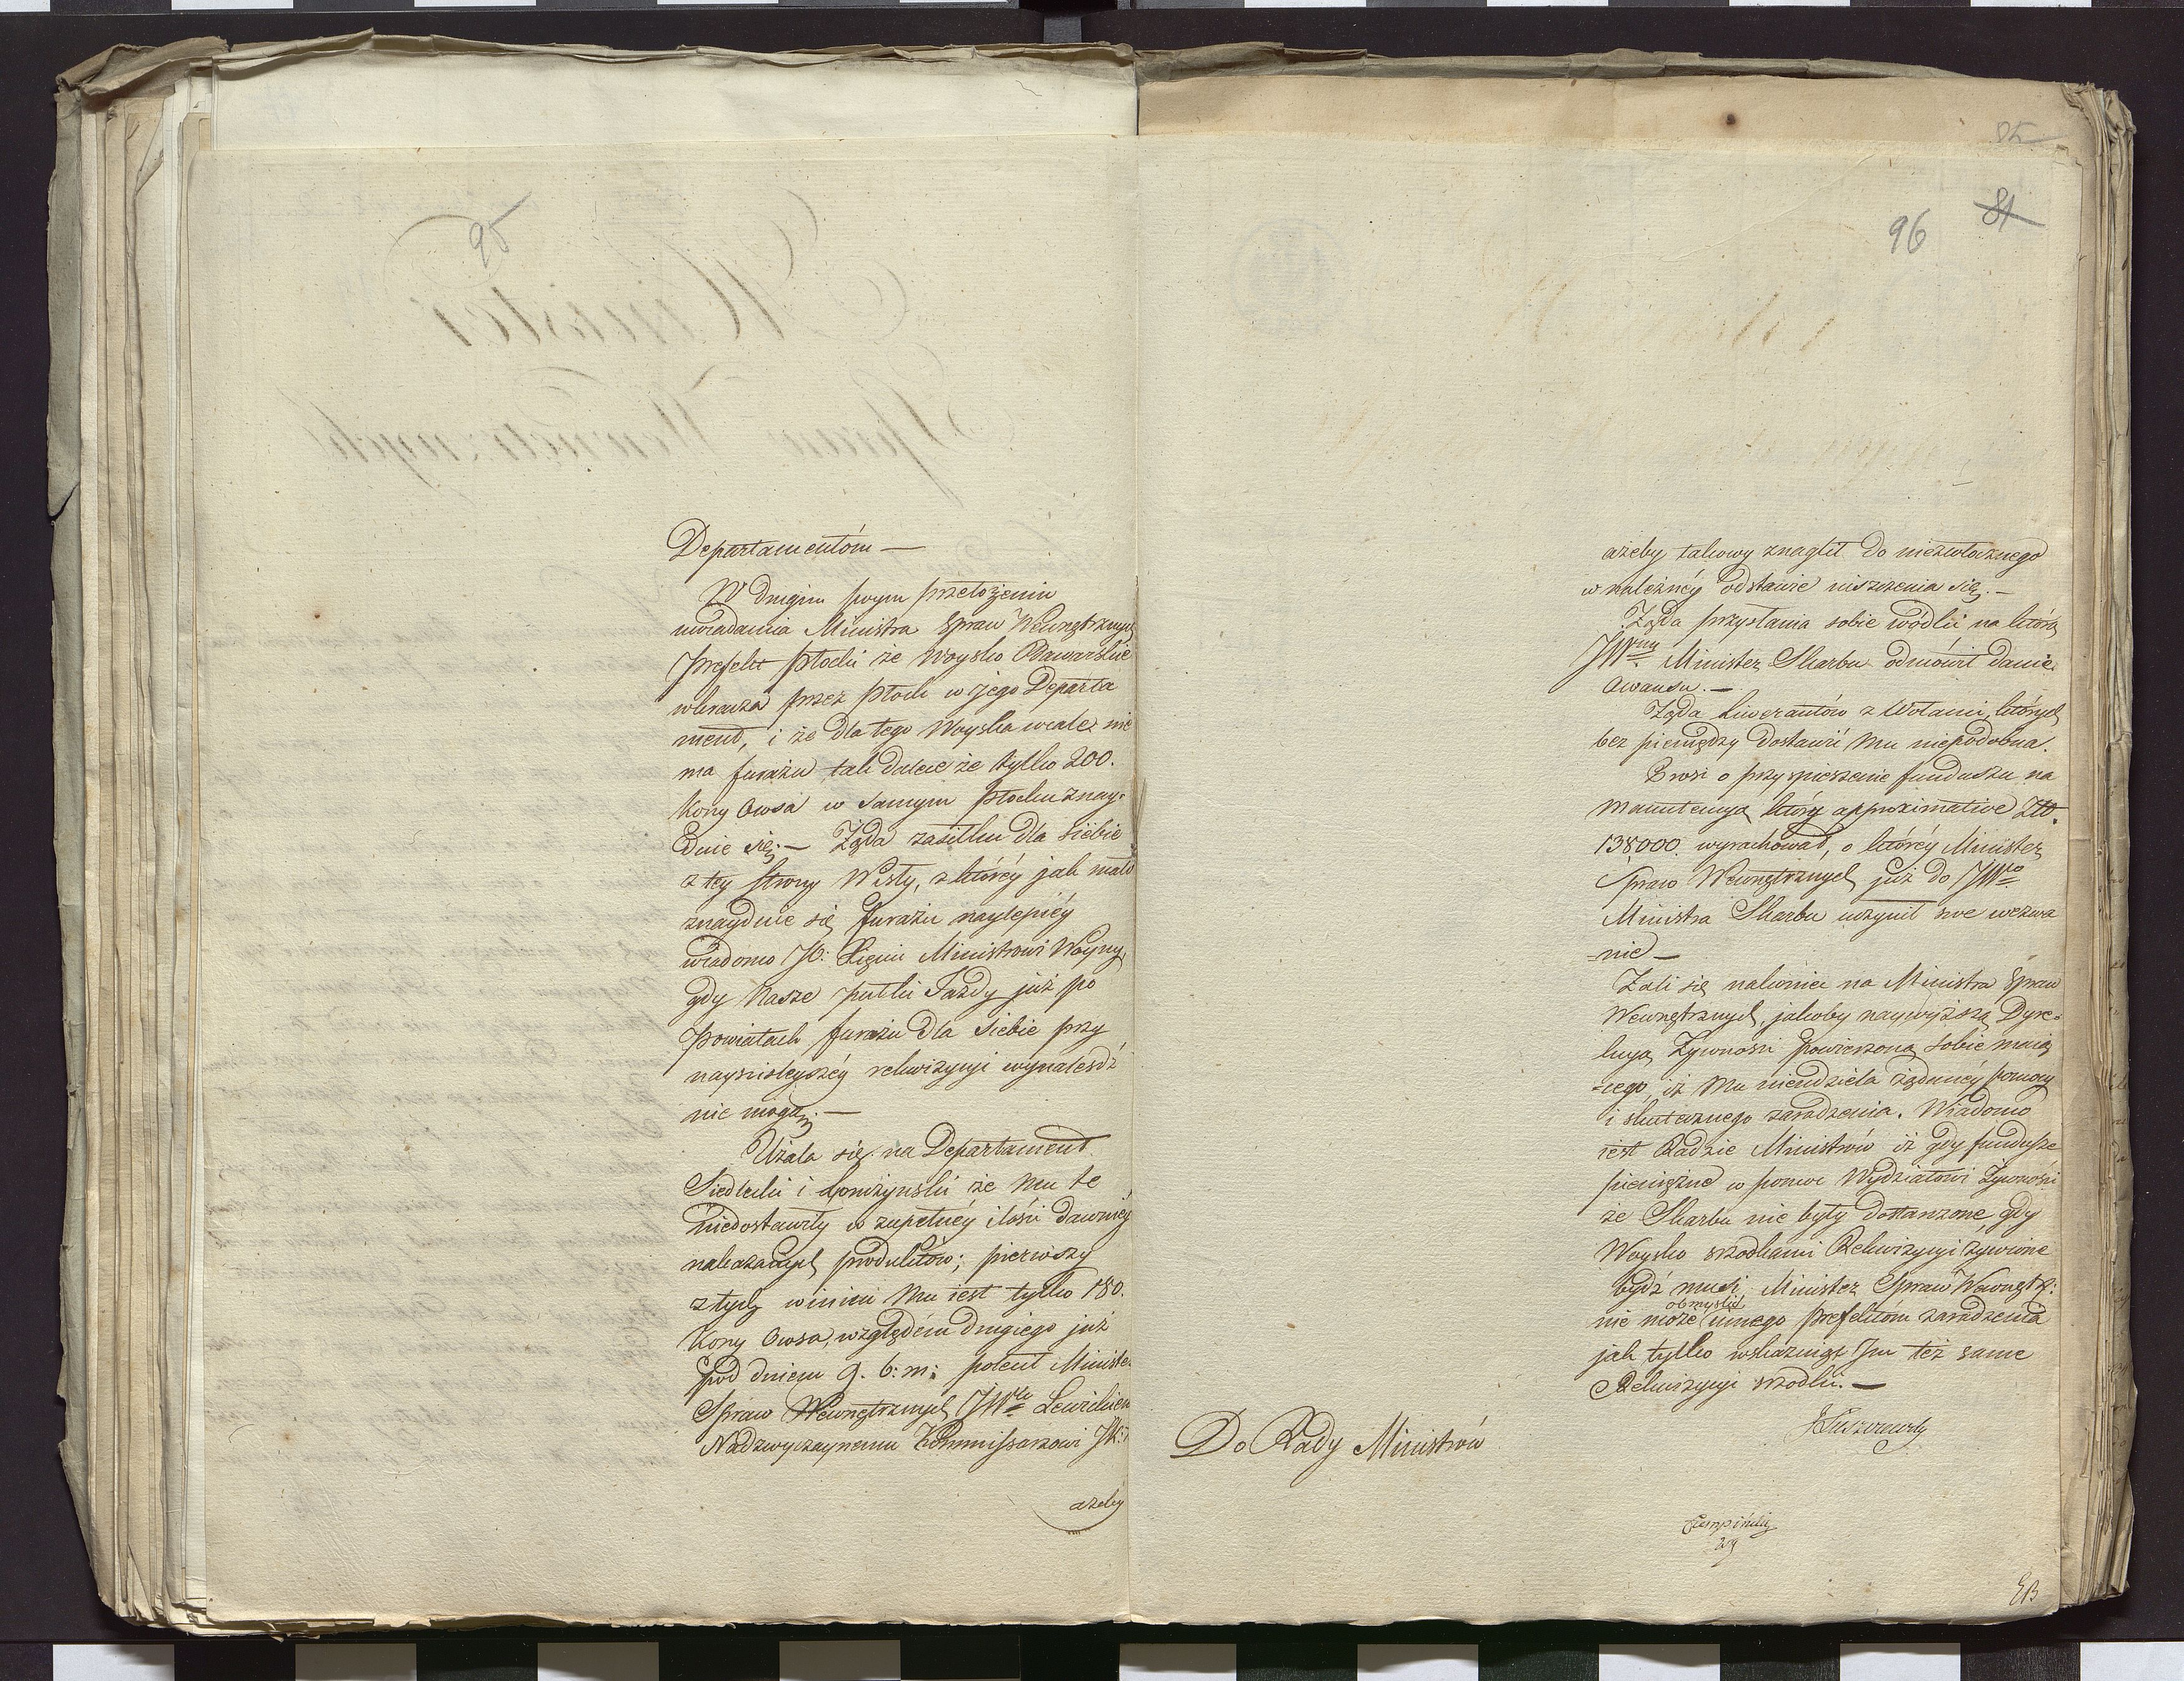 95
Departamentóm —
W drugim swym przełożeniu
uwiadamia Ministra Spraw Wewnętrznych
Prefekt Płocki że Woysko Bawarskie
wkracza przez Płock w jego Departa
ment, i że dla tego Woyska wcale nie
ma furażu tak dalece że tylko 200.
Kory Owsa w samym Płocku znay-
duie się. — Żąda zasiłku dla siebie
z tey strony Wisły, z którey jak mało
znayduie się furażu naylepiéy
wiadomo JO: Xięciu Ministrowi Woyny,
gdy Nasze pułki Jazdy już po
Powiatach furażu dla siebie przy
nayściśleyszéy rekwizycyi wynaleśdź
nie mogą. —
Użala się na Departament
Siedlecki i Łomżyński że mu te
niedostawiły w zupełnéy ilości dawniéy
nakazanych produktów; pierwszy
z tych winien mu iest tylko 180.
Kory Owsa, względem drugiego już
pod dniem 9. b: m: polecił Minister
Spraw Wewnętrznych JWu
Nadzwyczaynemu Kommissarzowi
ażeby
85
81
96
ażeby takowy znaglił do niezwłocznego
w należnéy odstawie uiszczenia się. —
Żąda przysłania sobie wódki na którą
JWny Minister Skarbu odmówił danie
Awansu. —
Żąda Liwerantów z Wołami, których
bez pieniędzy dostawić mu niepodobna.
Prosi o przyspieszenie funduszu na
Manutencyą którą approximative Złt.
138000. wyrachował, o któréy Minister
Spraw Wewnętrznych już do JWgo
Ministra Skarbu uczynił swe wezwa
-nie —
Żali się nakoniec na Ministra Spraw
Wewnętrznych, jakoby naywyższą Dyre-
kcyą Żywności powierzoną sobie maią
-cego, iż mu nieudziela żądanéy pomocy
i skutecznego zaradzenia. Wiadomo
iest Radzie Ministrów iż gdy fundusze
pieniężne w pomoc Wydziałowi Żywności
ze Skarbu nie były dostarczone, gdy
Woysko środkami Rekwizycyi żywione
bydź musi, Minister Spraw Wewnętrz:
obmyślić
nie może innego Prefektom zaradzenia
jak tylko wskazuiąc Im też same
Rekwizycyi środki. —
Łuszczewsky
Do Rady Ministrów
EB